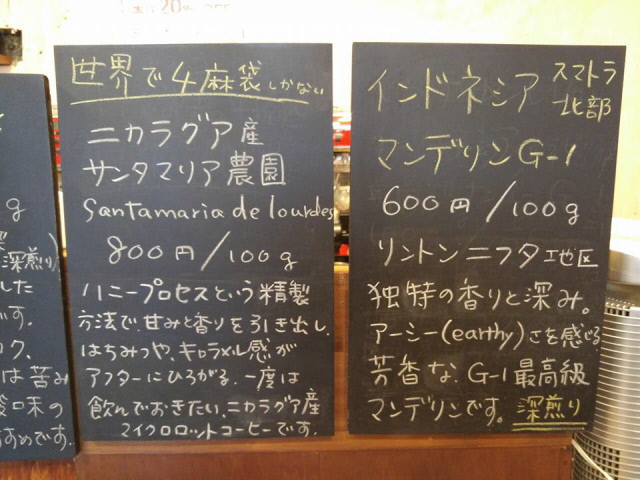 20
g
深煎り)
した
です。
ク、
は苦み
酸味の
すめです。
世界で4麻袋しかない
ニカラグア産
サンタマリア農園
Santamaria de lourdes
800円/100g
ハニープロセスという精製
方法で、甘みと香りを引き出し、
はちみつや、キャラメル感が
アフターにひろがる。一度は
飲んでおきたい、ニカラグア産
マイクロロットコーヒーです。
インドネシア スマトラ
北部
マンデリンG-1
600円/100g
リントンニフタ地区
独特の香りと深み。
アーシー(earthy)さを感じる
芳香な、G-1最高級
マンデリンです。深煎り